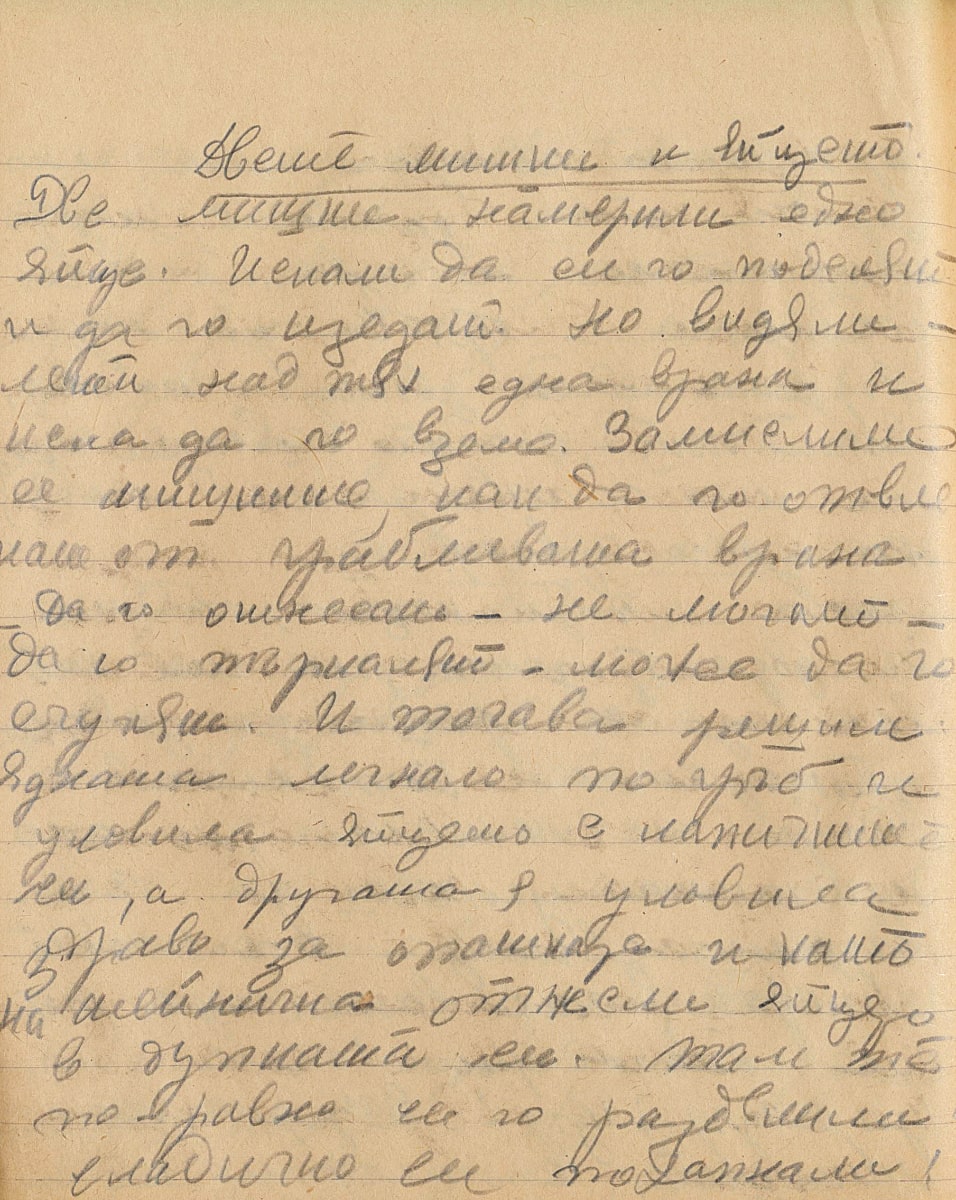 Двете мишки и яйцето.
Две мишки намерили едно
яйце. Искали да си го поделят
и да го изедат. Но видяли –
лети над тях една врана и
иска да го вземе. Замислили
се мишките, как да го отвле
кат от грабливата врана
– да го отнесат – не могат –
да го търкалят – може да го
счупят. И тогава решили.
Едната легнала по гръб и
уловила яйцето с лапичките
си, а другата я уловила
здраво за опашката и като
на шейничка отнесли яйцето
в дупката си. Там те
по равно си го разделили
сладично си похапнали!